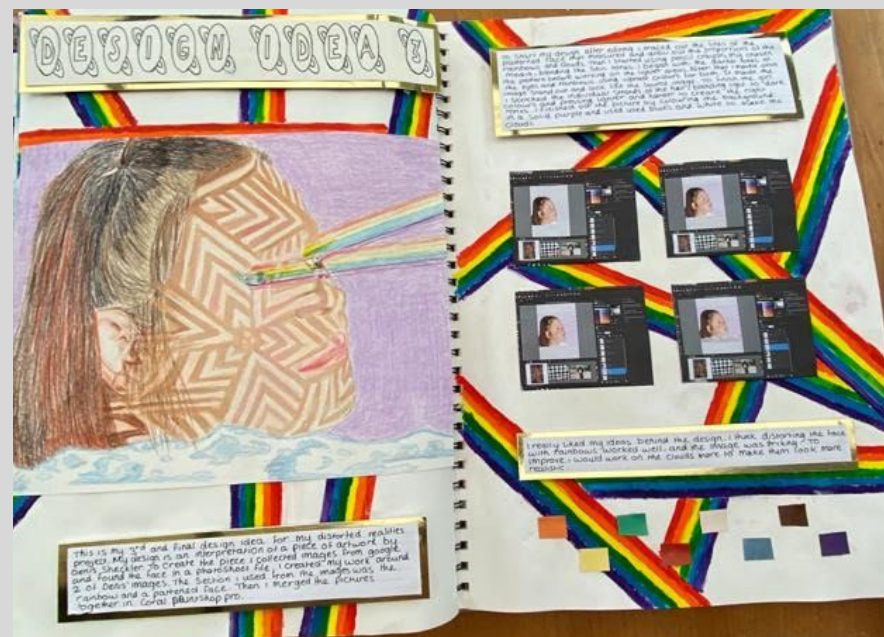 DESIGN IDEA 3
This is my 3rd and final design idea for my distorted realities
project. My design is an interpretation of a piece of artwork by
Denis Sheckler. To create the piece I collected images from google
and found the face in a photoshoot file, I created my work around
2 of Denis' images. The section I used from the images was the
rainbow and a partened face. Then I merged the pictures
together in Coral paintshop pro.
To start my design after editing I traced out the lines of the
patterned face then measured and drew out the proportions of the
rainbows and clouds. Then I started using pencil crayon
media, blending the skin tones. I began with the darker lines of
the pattern before working on the lighter areas. After that I
the eyes and rainbow adding lighter colours for
colours and pressing lighter and harder to create the right
tones. I finished off the picture by colouring the background
in a solid purple and used blues and white to make the
clouds.
I really liked my ideas behind the design. I think distorting the face
with rainbows worked well, and the image was striking. To
improve I would work on the clouds more to make them look more
realistic.